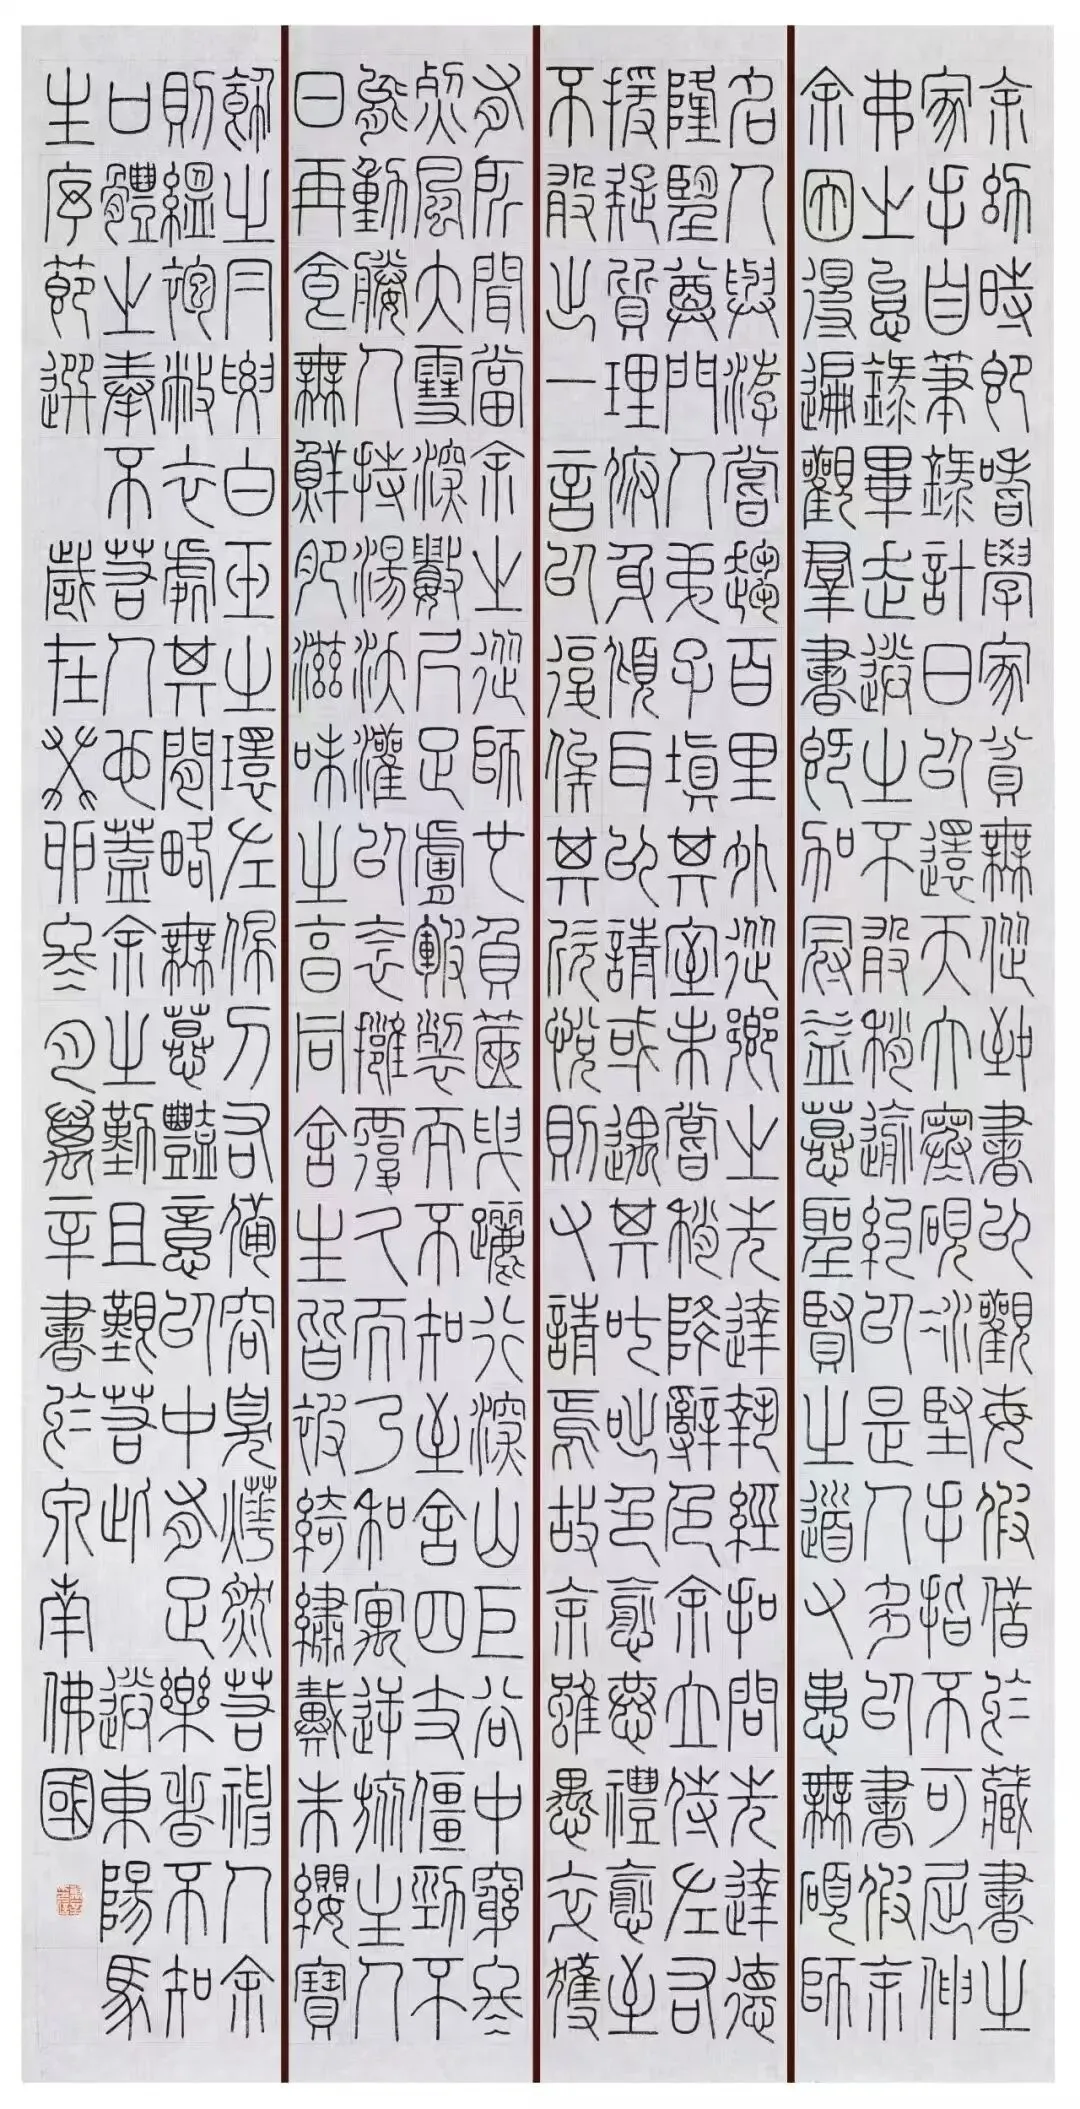 余幼時即嗜學家貧無從致書以觀每假借於藏書之
家手自筆錄計日以還天大寒硯冰堅手指不可屈伸
弗之怠錄畢走送之不敢稍逾約以是人多以書假余
余因得遍觀群書既加冠益慕聖賢之道又患無碩師
名人與游嘗趨百里外從鄉之先達執經扣問先達德
隆望尊門人弟子填其室未嘗稍降辭色余立侍左右
援疑質理俯身傾耳以請或遇其叱咄色愈恭禮愈至
不敢出一言以復俟其欣悅則又請焉故余雖愚卒獲
有所聞當余之從師也負篋曳屣行深山巨谷中窮冬
烈風大雪深數尺足膚皸裂而不知至舍四支僵勁不
能動媵人持湯沃灌以衾擁覆久而乃和寓逆旅主人
日再食無鮮肥滋味之享同舍生皆被綺繡戴朱纓寶
飾之冃腰白玉之環左佩刀右備容臭燁然若神人余
則縕袍敝衣處其間略無慕豔意以中有足樂者不知
口體之奉不若人也蓋余之勤且艱若此 送東陽馬
生序節選 歲在癸卯冬月萬辛書於泉南佛國